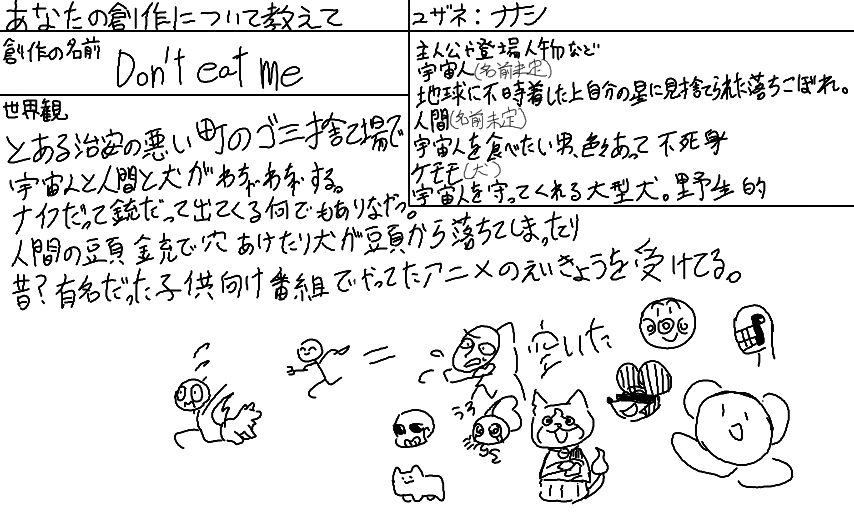 あなたの創作について教えて
ユザネ：ナナシ
創作の名前
Don't eat me
主人公や登場人物など
宇宙人(名前未定)
地球に不時着した上自分の星に見捨てられた落ちこぼれ。
人間(名前未定)
宇宙人を食べたい男、色々あって不死身
ケモモ(犬)
宇宙人を守ってくれる大型犬。野生的
世界観
とある治安の悪い町のゴミ捨て場で
宇宙人と人間と犬がわちゃわちゃする。
ナイフだって銃だって出てくる何でもありなやつ。
人間の頭銃で穴あけたり犬が頭から落ちてしまったり
昔?有名だった子供向け番組でやってたアニメのえいきょうを受けてる。
空いた
うろ